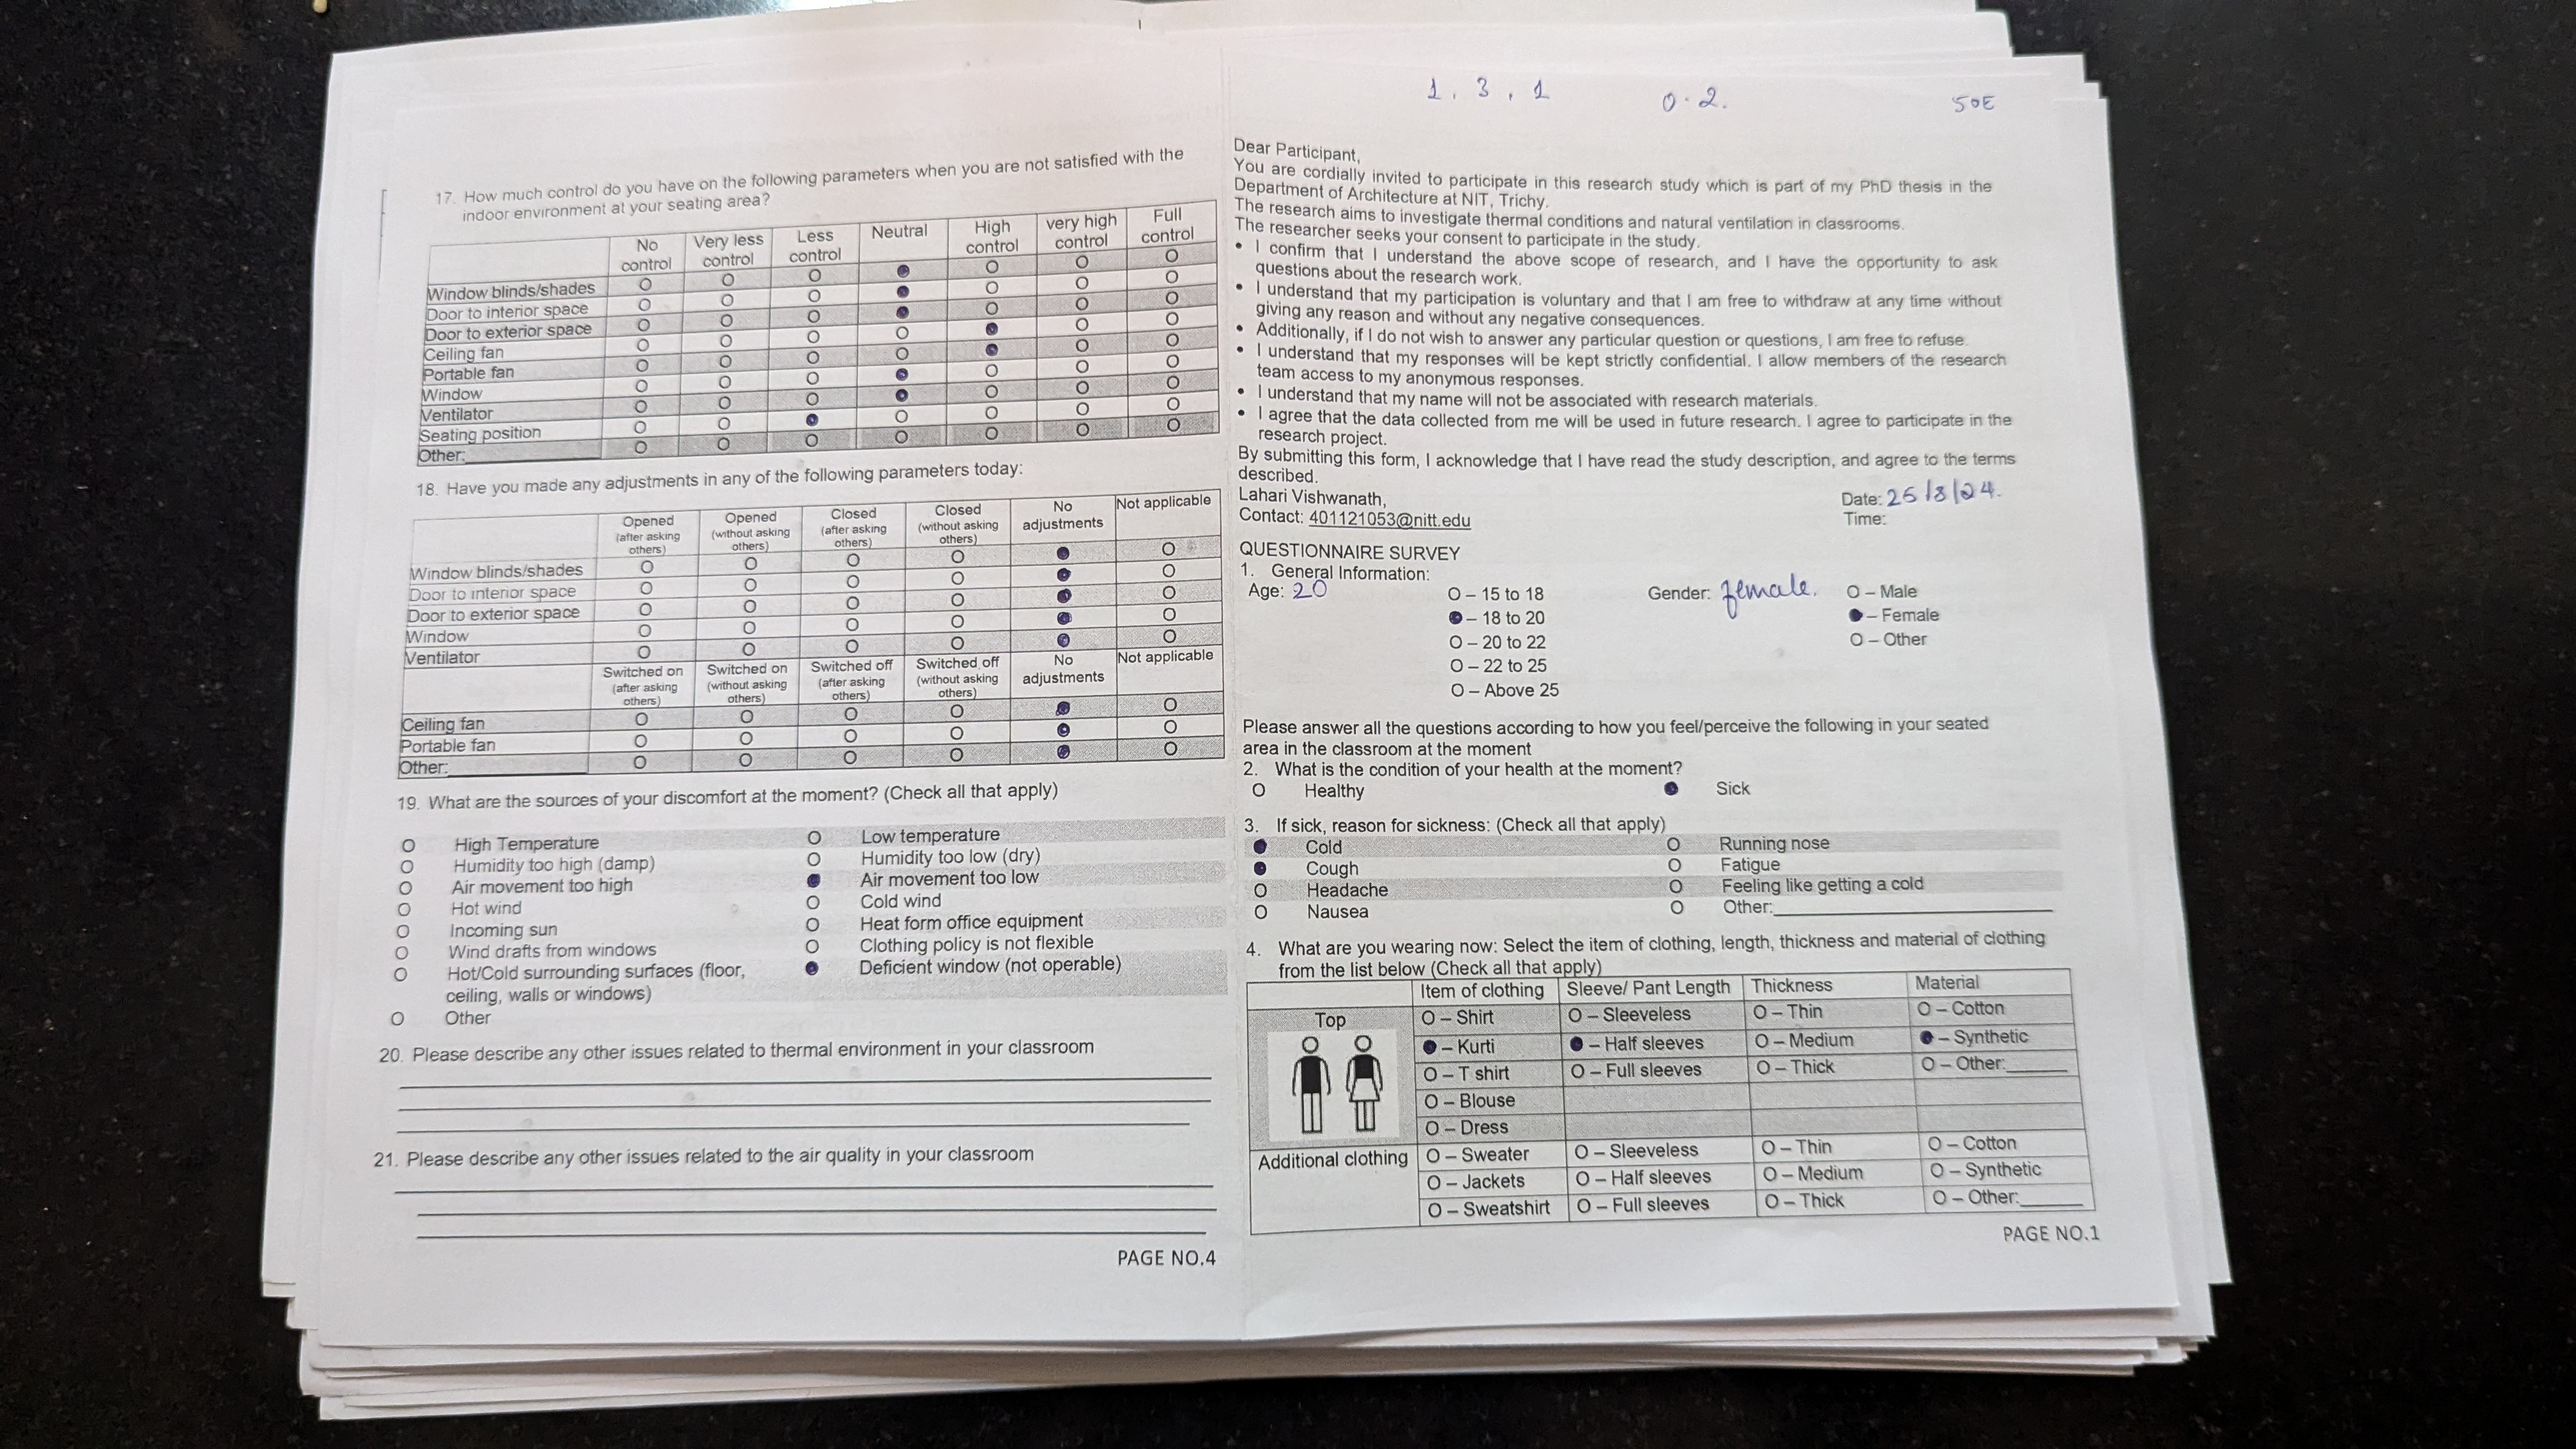 17. How much control do you have on the following parameters when you are not satisfied with the
indoor environment at your seating area?
No control Very less control Less control Neutral High control very high control Full control
Window blinds/shades O O O ● O O O
Door to interior space O O O ● O O O
Door to exterior space O O O ● O O O
Ceiling fan O O O O ● O O
Portable fan O O O O ● O O
Window O O O ● O O O
Ventilator O O O ● O O O
Seating position O O ● O O O O
Other:________ O O O O O O O
18. Have you made any adjustments in any of the following parameters today:
Opened (after asking others) Opened (without asking others) Closed (after asking others) Closed (without asking others) No adjustments Not applicable
Window blinds/shades O O O O ● O
Door to interior space O O O O ● O
Door to exterior space O O O O ● O
Window O O O O ● O
Ventilator O O O O ● O
Switched on (after asking others) Switched on (without asking others) Switched off (after asking others) Switched off (without asking others) No adjustments Not applicable
Ceiling fan O O O O ● O
Portable fan O O O O ● O
Other:________ O O O O ● O
19. What are the sources of your discomfort at the moment? (Check all that apply)
O High Temperature O Low temperature
O Humidity too high (damp) O Humidity too low (dry)
O Air movement too high ● Air movement too low
O Hot wind O Cold wind
O Incoming sun O Heat form office equipment
O Wind drafts from windows O Clothing policy is not flexible
O Hot/Cold surrounding surfaces (floor, ● Deficient window (not operable)
ceiling, walls or windows)
O Other
20. Please describe any other issues related to thermal environment in your classroom
21. Please describe any other issues related to the air quality in your classroom
PAGE NO.4
1, 3, 1 0.2. 50E
Dear Participant,
You are cordially invited to participate in this research study which is part of my PhD thesis in the
Department of Architecture at NIT, Trichy.
The research aims to investigate thermal conditions and natural ventilation in classrooms.
The researcher seeks your consent to participate in the study.
• I confirm that I understand the above scope of research, and I have the opportunity to ask
questions about the research work.
• I understand that my participation is voluntary and that I am free to withdraw at any time without
giving any reason and without any negative consequences.
• Additionally, if I do not wish to answer any particular question or questions, I am free to refuse.
• I understand that my responses will be kept strictly confidential. I allow members of the research
team access to my anonymous responses.
• I understand that my name will not be associated with research materials.
• I agree that the data collected from me will be used in future research. I agree to participate in the
research project.
By submitting this form, I acknowledge that I have read the study description, and agree to the terms
described.
Lahari Vishwanath, Date: 25/8/24.
Contact: 401121053@nitt.edu Time:
QUESTIONNAIRE SURVEY
1. General Information:
Age: 20 O – 15 to 18 Gender: female. O – Male
● – 18 to 20 ● – Female
O – 20 to 22 O – Other
O – 22 to 25
O – Above 25
Please answer all the questions according to how you feel/perceive the following in your seated
area in the classroom at the moment
2. What is the condition of your health at the moment?
O Healthy ● Sick
3. If sick, reason for sickness: (Check all that apply)
● Cold O Running nose
● Cough O Fatigue
O Headache O Feeling like getting a cold
O Nausea O Other:________
4. What are you wearing now: Select the item of clothing, length, thickness and material of clothing
from the list below (Check all that apply)
Item of clothing Sleeve/ Pant Length Thickness Material
Top O – Shirt O – Sleeveless O – Thin O – Cotton
● – Kurti ● – Half sleeves O – Medium ● – Synthetic
O – T shirt O – Full sleeves O – Thick O – Other:______
O – Blouse
O – Dress
Additional clothing O – Sweater O – Sleeveless O – Thin O – Cotton
O – Jackets O – Half sleeves O – Medium O – Synthetic
O – Sweatshirt O – Full sleeves O – Thick O – Other:______
PAGE NO.1